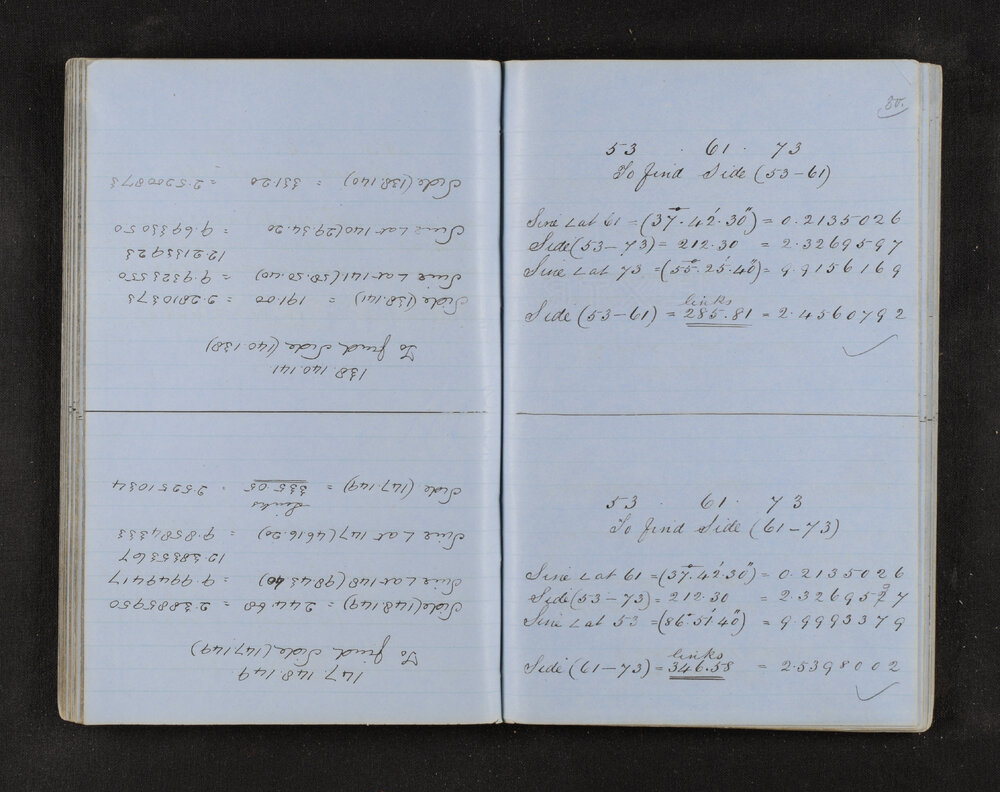 147. 148. 149
To find Side (147.149)
Side (148.149) = 244.68 = 2.3885950
Sine ∠ at 148 (98.43.40) = 9.9949417
12.3835367
Sine ∠ at 147 (46.16.20) = 9.8584333
links
Side (147.149) = 335.05 . 2.5251034
138. 140. 141
To find Side (140.138)
Side (138.141) = 191.00 = 2.2810373
Sine ∠ at 141 (58.50.40) = 9.9323550
12.2133923
Sine ∠ at 140 (29.34.20) = 9.6933050
Side (138.140) = 331.20 = 2.5200873
53 . 61 . 73
To find Side (53-61)
Sine ∠ at 61 = (37°.42'.30") = 0.2135026
Side (53-73) = 212.30 = 2.3269597
Sine ∠ at 73 = (55°.25'.40") = 9.9156169
links
Side (53-61) = 285.81 = 2.4560792
53 . 61 . 73
To find Side (61-73)
Sine ∠ at 61 = (37°.42'.30") = 0.2135026
Side (53-73) = 212.30 = 2.3269597
Sine ∠ at 53 = (86°.51'.40") = 9.9993379
links
Side (61-73) = 346.58 = 2.5398002